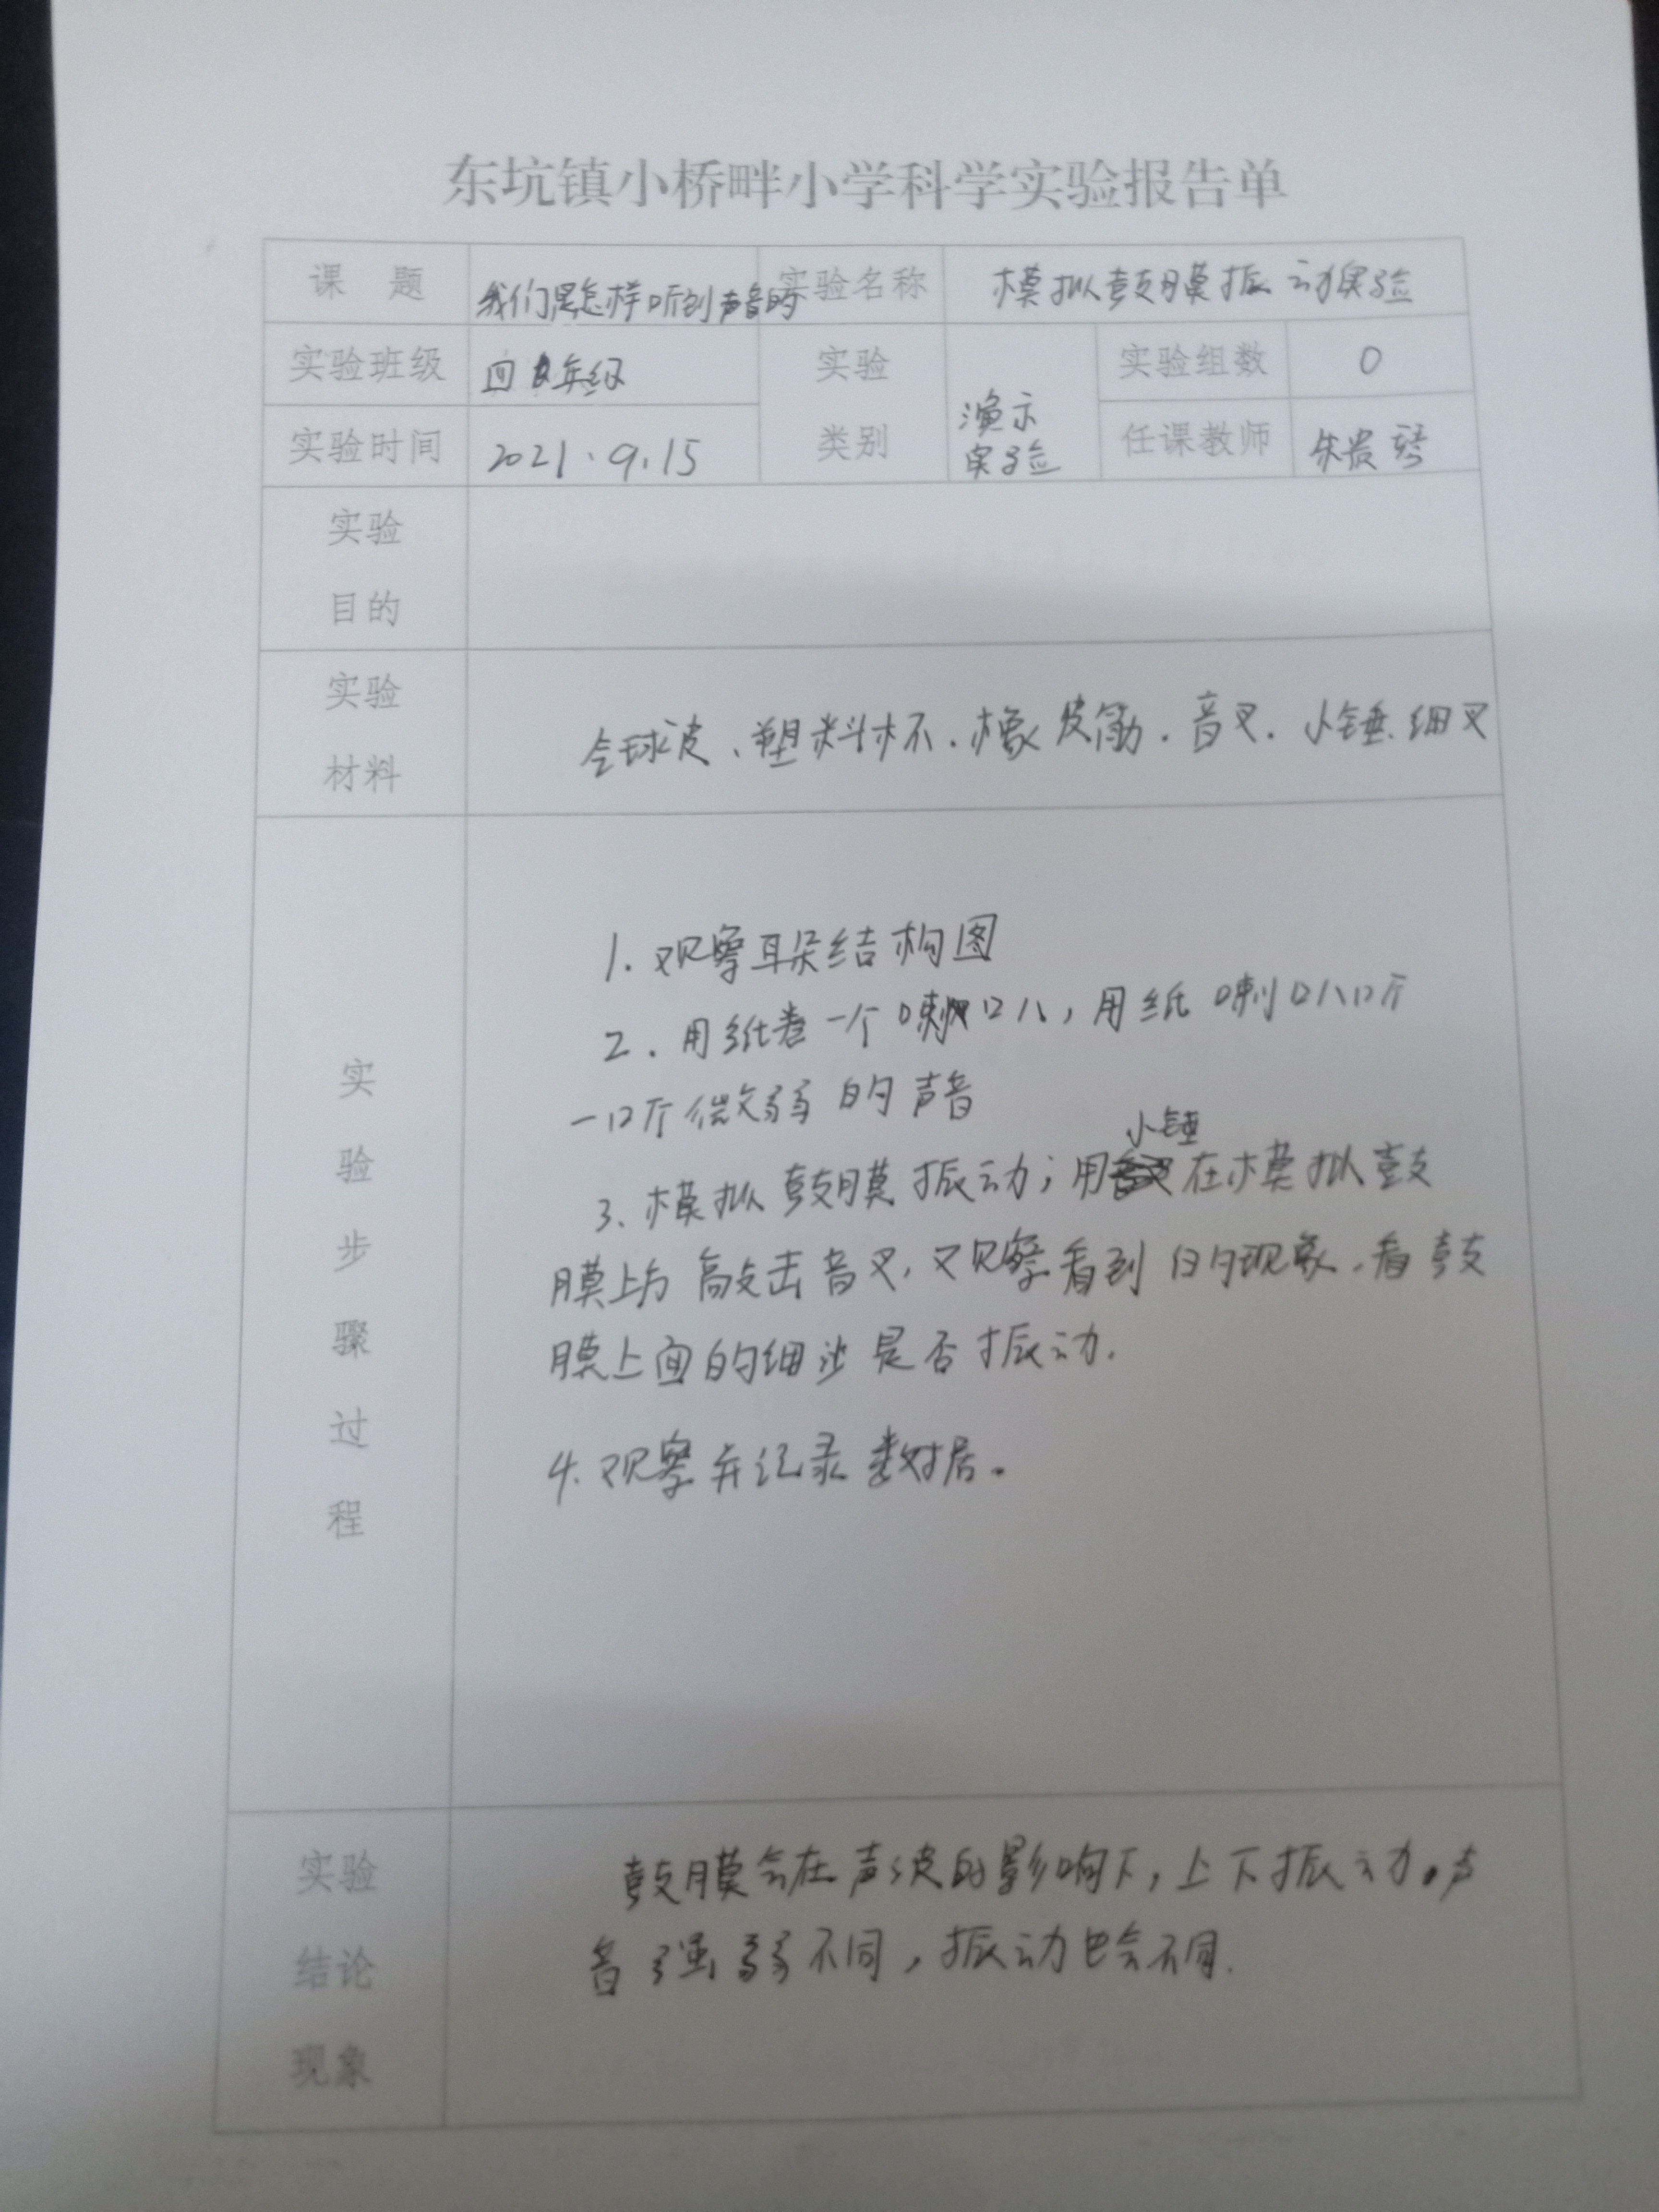 东坑镇小桥畔小学科学实验报告单
课 题 我们是怎样听到声音的 实验名称 模拟鼓膜振动实验
实验班级 四年级 实验 类别 演示 实验 实验组数 0
实验时间 2021.9.15 任课教师 朱贵琴
实验
目的
实验
材料
气球皮、塑料杯、橡皮筋、音叉、小锤、细叉
实
验
步
骤
过
程
1. 观察耳朵结构图
2. 用纸卷一个喇叭,用纸喇叭听
一听微弱的声音
小锤
3. 模拟鼓膜振动;用在模拟鼓
膜上方敲击音叉,观察看到的现象,看鼓
膜上面的细沙是否振动.
4. 观察并记录数据。
实验
结论
现象
鼓膜会在声波的影响下,上下振动。声
音强弱不同,振动也会不同.